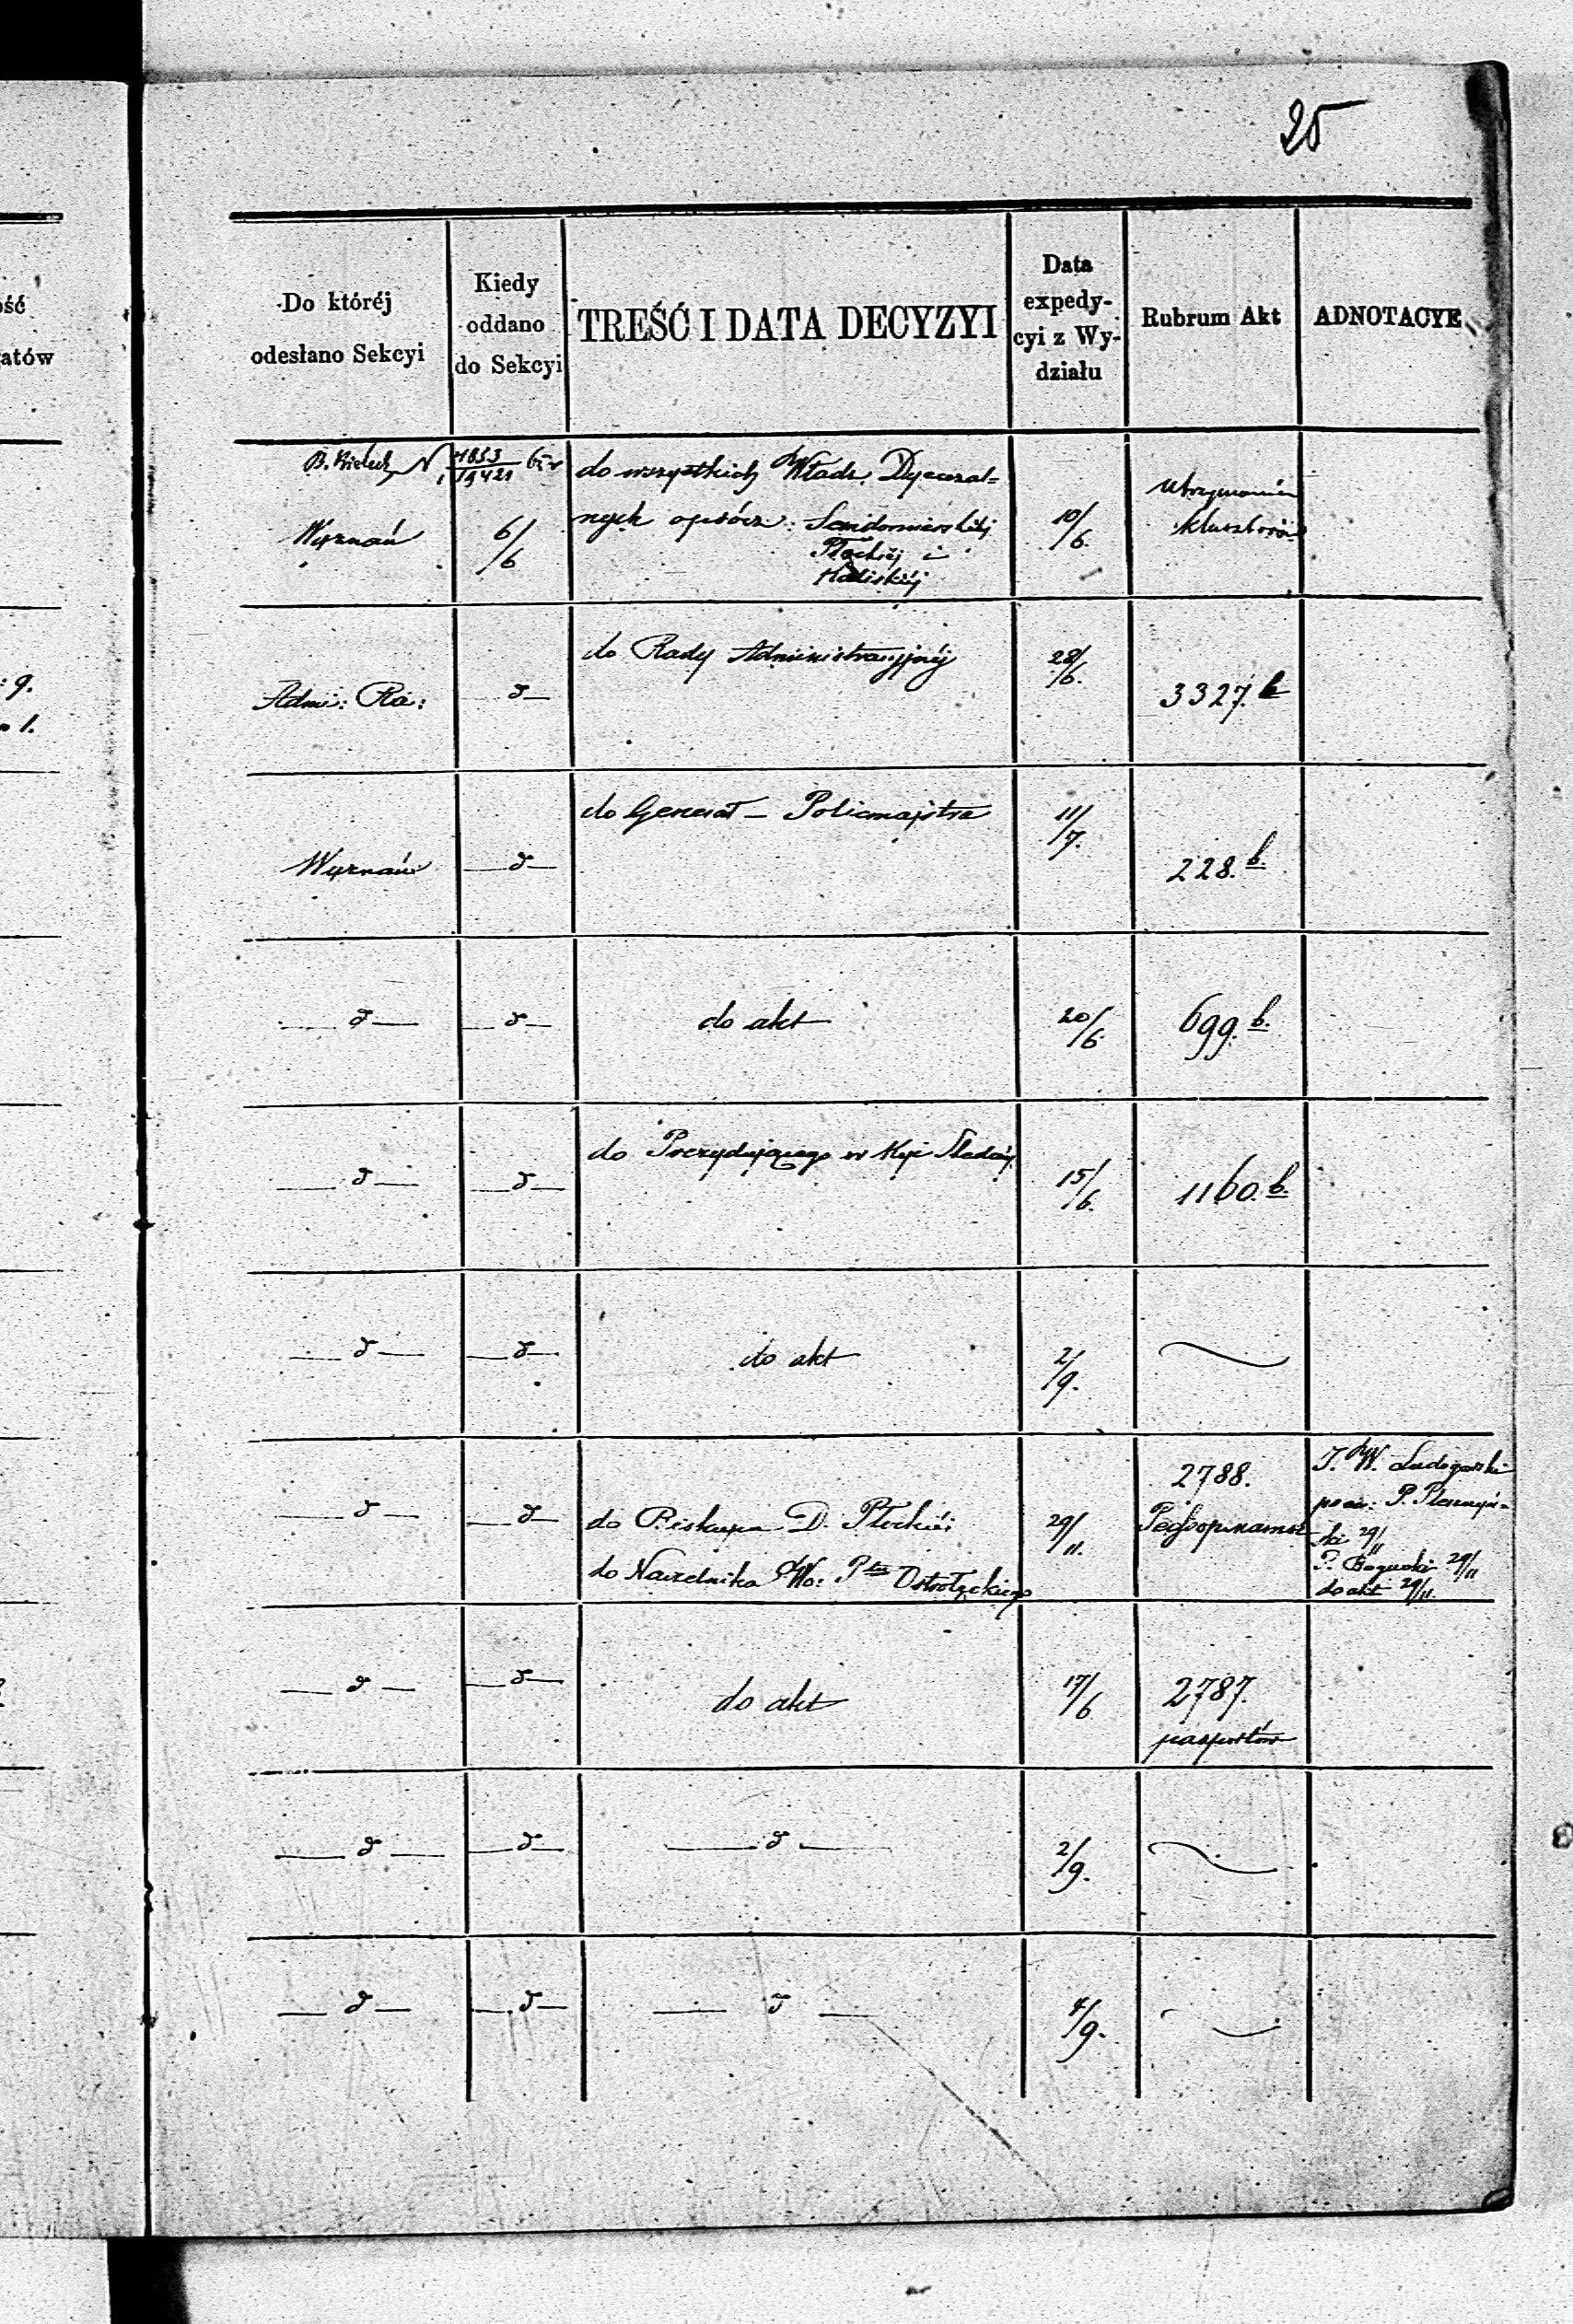 25
ość
atów
Do któréj
odesłano Sekcyi
Kiedy
oddano
do Sekcyi
TREŚĆ I DATA DECYZYI
Data
expedy-
cyi z Wy-
działu
Rubrum Akt
ADNOTACYE
N 19421
Wyznań
6/6
do wszystkich Władz Dyecezal=
nych oprócz: Sandomierskiéj
Płockiéj i
Kaliskiéj
10/6.
Utrzymania
klasztorów
: 9.
1.
Admi: Ra:
d
do Rady Administracyjnéj
28/6.
3327. b
Wyznań
d
do Generał - Policmajstra
11/7.
228. b.
d
d
do akt
20/6.
699. b.
d
d
do Prezydującego w Kyi Śledczéj
15/6.
1160. b.
d
d
do akt
2/9.
d
d
do Biskupa D. Płockiéj
do Naczelnika Wo: Ptu Ostrołęckiego
29/11.
2788.
J. W.
P.
ski 29/11
P. Bogucki 29/11
do akt 29/11.
d
d
do akt
17/6
2787.
paszportów
d
d
d
2/9.
d
d
d
4/9.